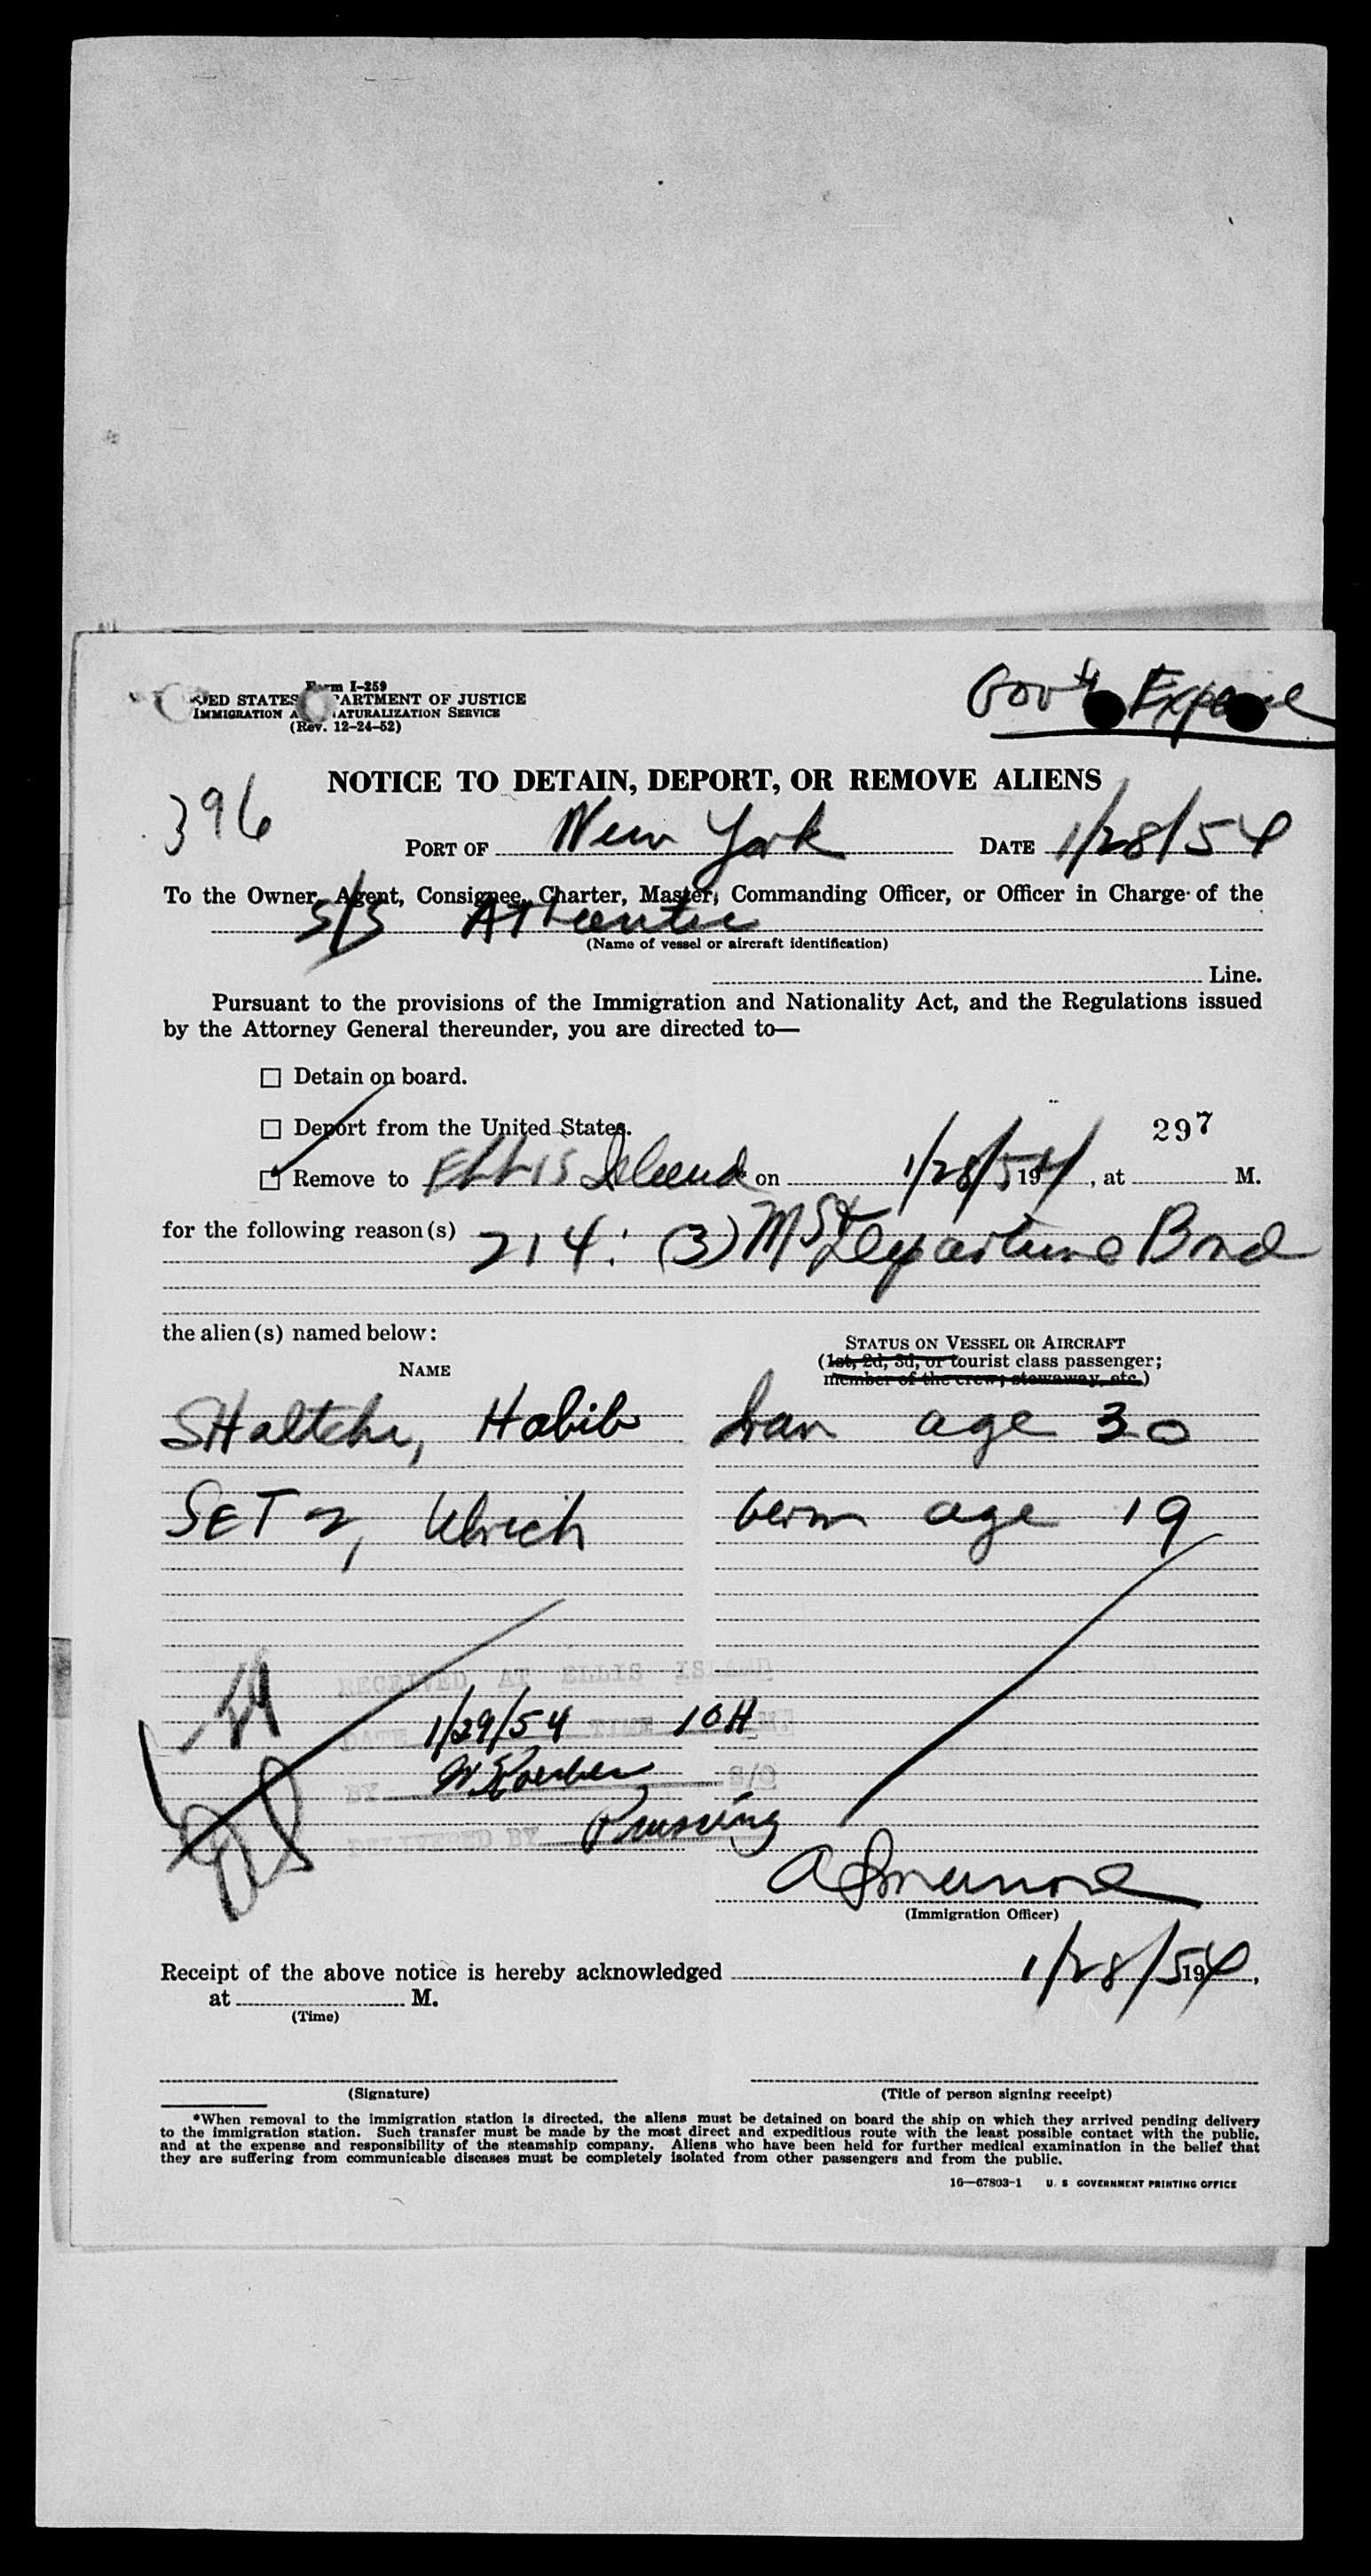 Form I-259
UNITED STATES DEPARTMENT OF JUSTICE
IMMIGRATION AND NATURALIZATION SERVICE
(Rev. 12-24-52)
Gov't Expense
NOTICE TO DETAIN, DEPORT, OR REMOVE ALIENS
396
PORT OF New York DATE 1/28/54
To the Owner, Agent, Consignee, Charter, Master, Commanding Officer, or Officer in Charge of the
S/S Atlantic
(Name of vessel or aircraft identification)
Line.
Pursuant to the provisions of the Immigration and Nationality Act, and the Regulations issued
by the Attorney General thereunder, you are directed to—
Detain on board.
Deport from the United States.
297
Remove to Ellis Island on 1/28/54 19, at M.
for the following reason(s) 214: (3) Departure Bond
the alien(s) named below:
STATUS ON VESSEL OR AIRCRAFT
(1st, 2d, 3d, or tourist class passenger;
member of the crew; stowaway, etc.)
NAME
Habib Iran age 30
SETZ, Ulrich Germ age 19
RECEIVED AT ELLIS ISLAND
DATE 1/29/54 TIME 10
BY
DELIVERED BY
(Immigration Officer)
Receipt of the above notice is hereby acknowledged 1/28/54 19,
at M.
(Time)
(Signature) (Title of person signing receipt)
*When removal to the immigration station is directed, the aliens must be detained on board the ship on which they arrived pending delivery
to the immigration station. Such transfer must be made by the most direct and expeditious route with the least possible contact with the public,
and at the expense and responsibility of the steamship company. Aliens who have been held for further medical examination in the belief that
they are suffering from communicable diseases must be completely isolated from other passengers and from the public.
16—67803-1 U. S GOVERNMENT PRINTING OFFICE